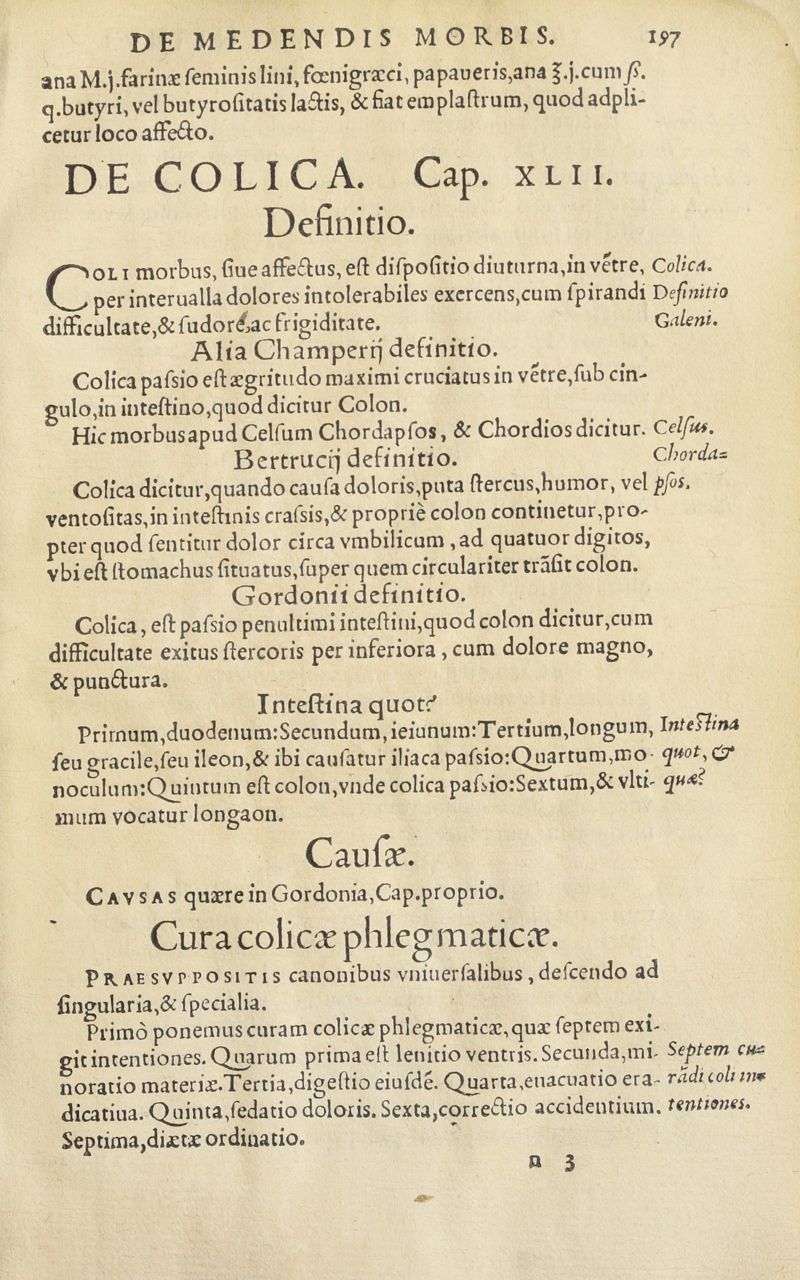 DE MEDENDIS MORBIS. 197
ana M.j.farinæ ſeminis lini, fœnigræci, papaueris,ana ℥.j.cum ß.
q.butyri, vel butyroſitatis lactis, & fiat emplaſtrum, quod adpli-
cetur loco affecto.
DE COLICA. Cap. XLII.
Definitio.
COLI morbus, ſiue affectus, eſt diſpoſitio diuturna,in vẽtre, Colica.
per interualla dolores intolerabiles exercens,cum ſpirandi Definitio
difficultate,& ſudore,ac frigiditate. Galeni.
Alia Champerij definitio.
Colica paſsio eſt ægritudo maximi cruciatus in vẽtre,ſub cin-
gulo,in inteſtino,quod dicitur Colon.
Hic morbus apud Celſum Chordapſos, & Chordios dicitur. Celſus.
Bertrucij definitio. Chorda=
Colica dicitur,quando cauſa doloris,puta ſtercus,humor, vel pſos.
ventoſitas,in inteſtinis craſsis,& propriè colon continetur,pro-
pter quod ſentitur dolor circa vmbilicum ,ad quatuor digitos,
vbi eſt ſtomachus ſituatus,ſuper quem circulariter trãſit colon.
Gordonii definitio.
Colica, eſt paſsio penultimi inteſtini,quod colon dicitur,cum
difficultate exitus ſtercoris per inferiora , cum dolore magno,
& punctura.
Inteſtina quot?
Primum,duodenum:Secundum, ieiunum:Tertium,longum, Inteſtina
ſeu gracile,ſeu ileon,& ibi cauſatur iliaca paſsio:Quartum,mo- quot, &
noculum:Quintum eſt colon,vnde colica paſsio:Sextum,& vlti- quæ?
mum vocatur longaon.
Cauſæ.
CAVSAS quære in Gordonia,Cap.proprio.
Cura colicæ phlegmaticæ.
PRAESVPPOSITIS canonibus vniuerſalibus, deſcendo ad
ſingularia,& ſpecialia.
Primò ponemus curam colicæ phlegmaticæ,quæ ſeptem exi-
git intentiones. Quarum prima eſt lenitio ventris. Secunda,mi- Septem cu=
noratio materiæ.Tertia,digeſtio eiuſdẽ. Quarta,euacuatio era- rãdi coli in=
dicatiua. Quinta,ſedatio doloris. Sexta,correctio accidentium. tentiones.
Septima,diætæ ordinatio.
n 3